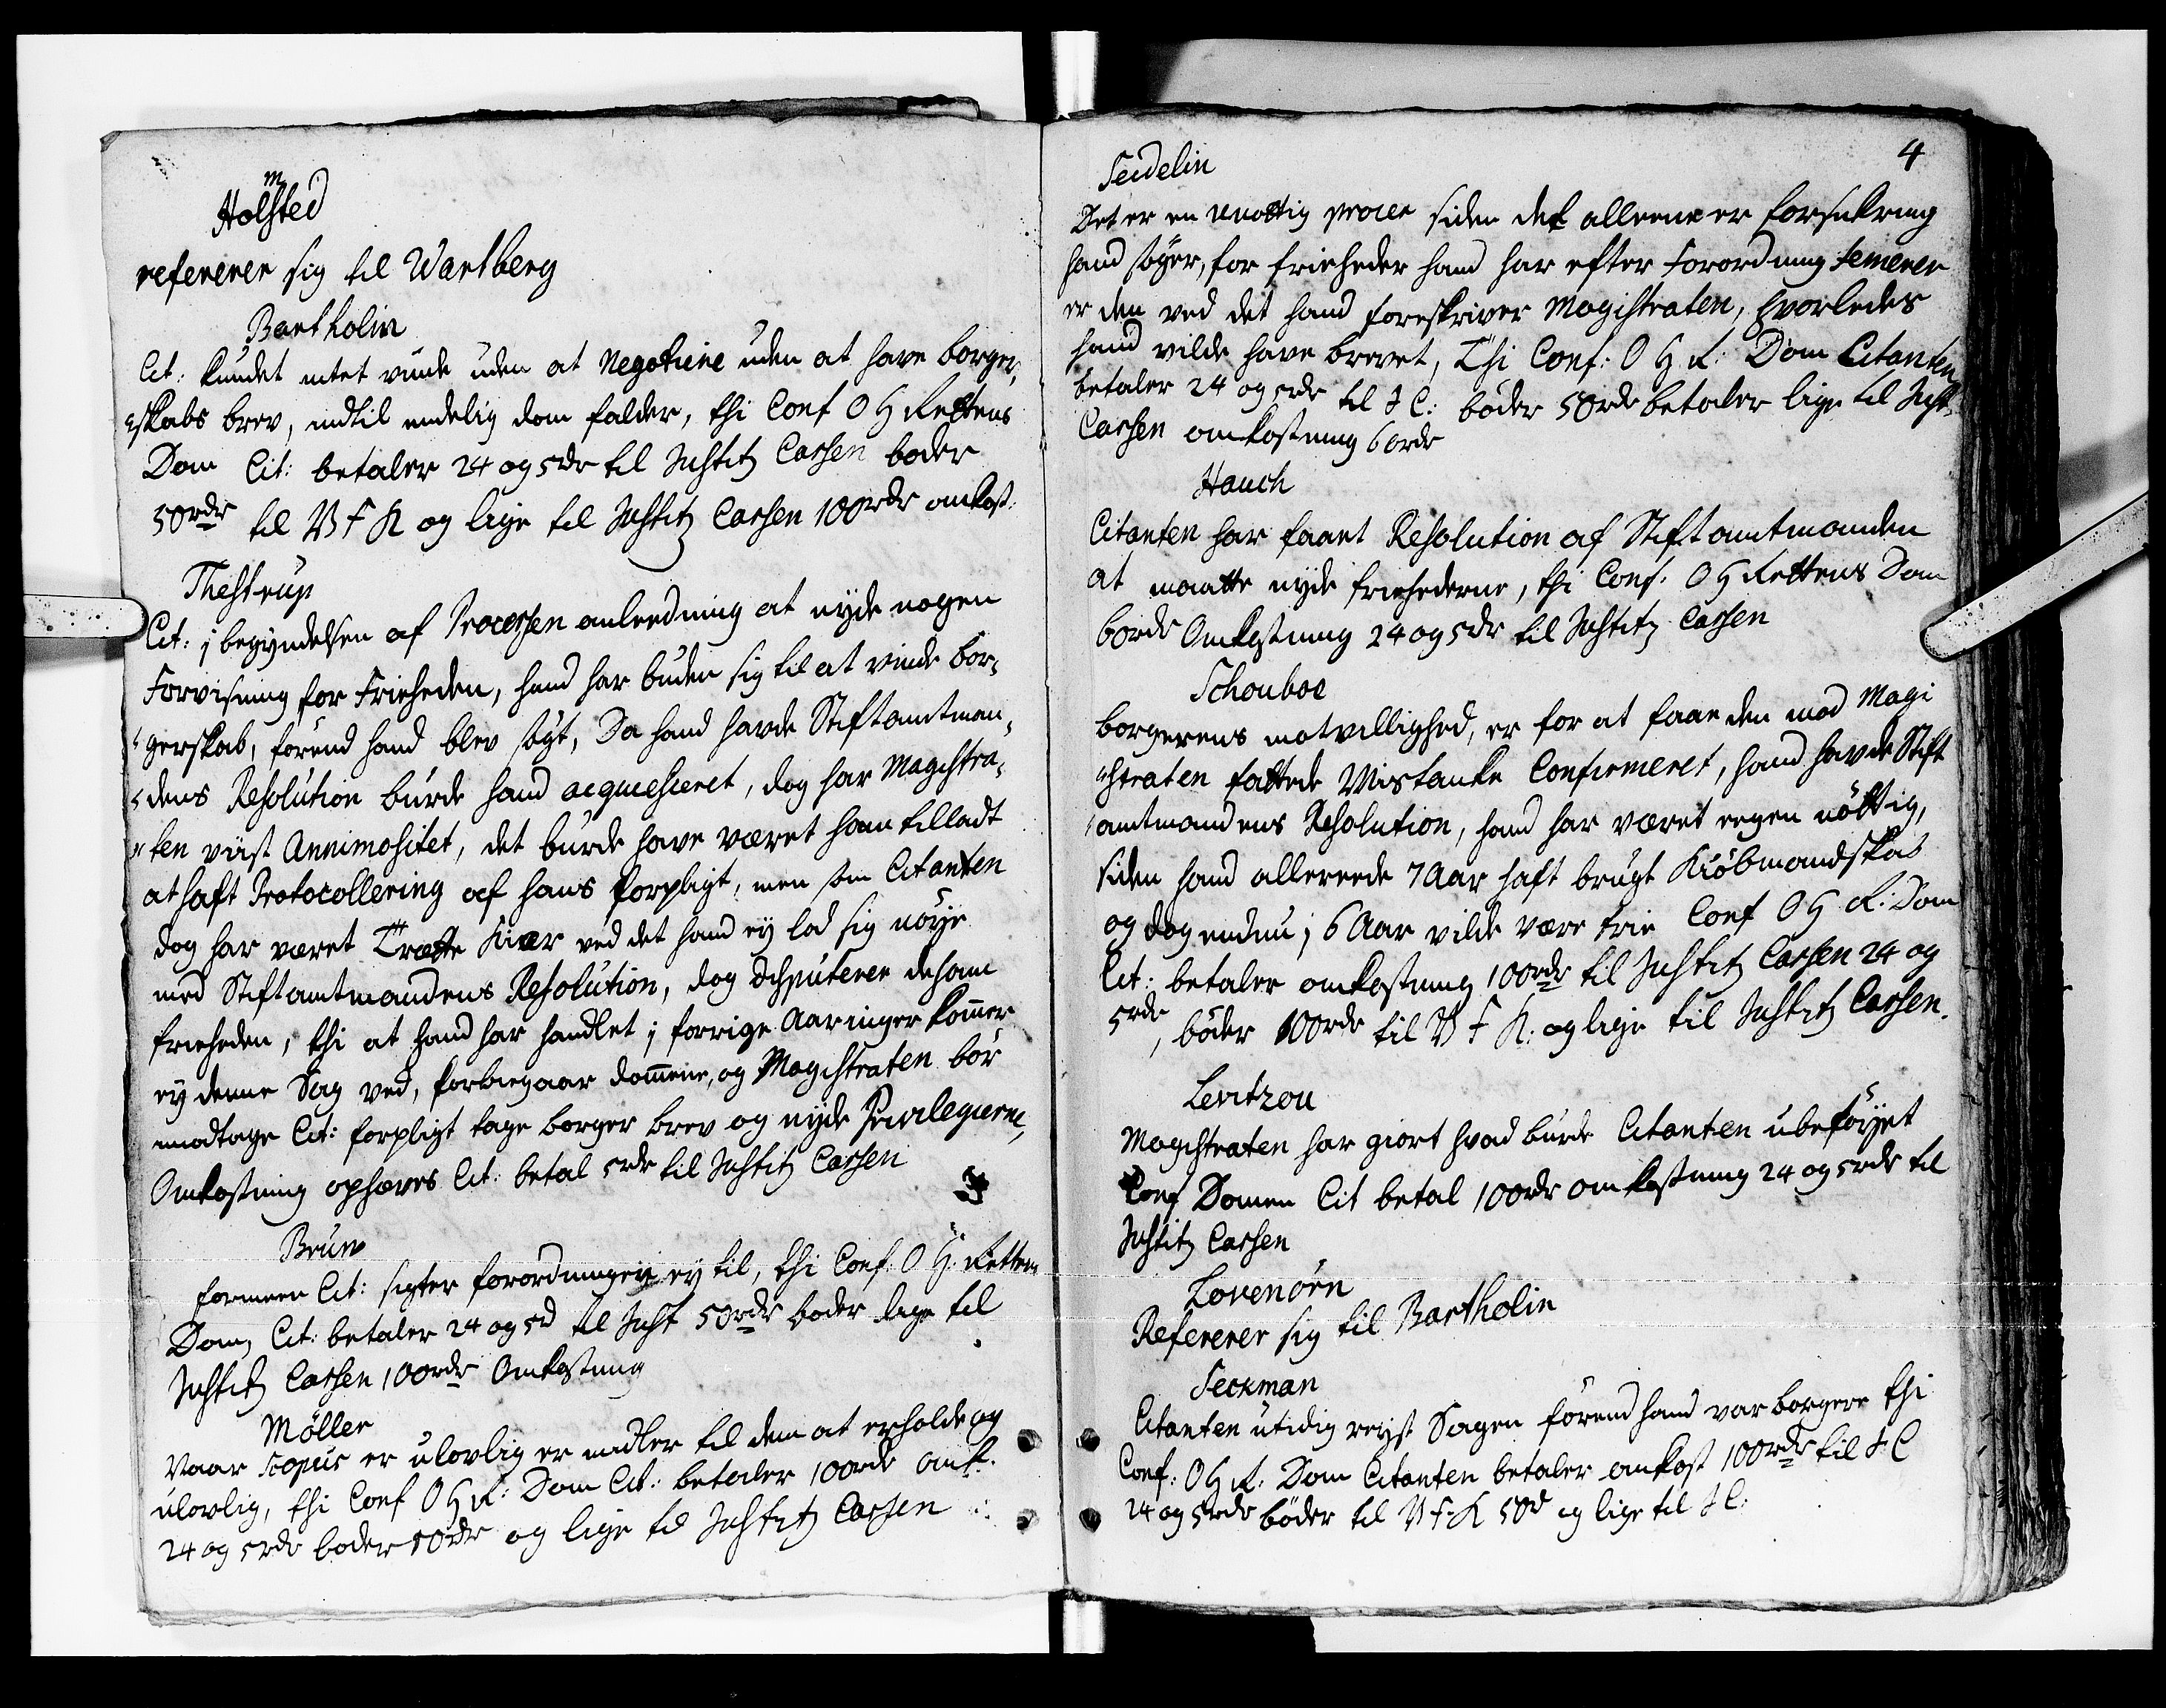 m
Holsted
refererer sig til Wartberg
Bartholin
Cit: kundet intet vinde uden at Negotiere uden at have borger,
skabs brev, indtil endelig dom falder, thi Conf O H Rettens
Dom Cit: betaler 24 og 5rdr til Justitz Cassen bøder
50rdr til V F K og lige til Justitz Cassen 100rdr omkost:
Thestrup
Cit: i begyndelsen af Processen anleedning at nyde nogen
Forvisning for Friheden, hand har buden sig til at vinde bor-
gerskab, førend hand blev søgt, Da hand havde Stiftamtman,
dens Resolution burde hand acquiesceret, dog har Magistra,
ten viist Annimositet, det burde have været ham tilladt
at haft Protocollering af hans forpligt, men som Citanten
dog har været Trætte Kiær ved det hand ey lod sig nøye
med Stiftamtmandens Resolution, dog disputerer de ham
friheden, thi at hand har handlet i forrige Aaringer kommer
ey denne Sag ved, forbiegaar dommene, og Magistraten bør
imodtage Cit: forpligt tage borger brev og nyde Privilegierne,
Omkostning ophæves Cit: betal 5rdr til Justitz Cassen
Brun
formeen Cit: sigter forordningen ey til, thi Conf: O H: Rettens
Dom, Cit: betaler 24 og 5rd til Just 50rdr bøder lige til
Justitz Cassen 100rdr Omkostning
Møller
Naar Scopus er ulovlig er midler til dem at erholde og
ulovlig, thi Conf O H R: Dom Cit: betaler 100rdr omk:
24 og 5rdr bøder 50rdr og lige til Justitz Cassen
4
Seidelin
Det er en unøttig proces siden det alleene er forsikring
hand søger, for friheder hand har efter Forordning temerer
er den ved det hand foreskriver Magistraten, hvorledes
hand vilde have brevet, Thi Conf: O H R: Dom Citanten
betaler 24 og 5rdr til J C: bøder 50rdr betaler lige til Just:
Cassen omkostning 60rdr
Hauch
Citanten har faaet Resolution af Stiftamtmanden
at maatte nyde friehederne, thi Conf: O H Rettens Dom
60rdr Omkostning 24 og 5rdr til Justitz Cassen
Schouboe
borgerens motvillighed, er for at faae den mod Magi
straten fattede Mistanke Confirmeret, hand havde Stift
amtmandens Resolution, hand har været eegen nøttig,
siden hand allereede 7 Aar haft brugt Kiøbmandskab
og dog endnu i 6 Aar vilde være frie Conf O H R: Dom
Cit: betaler omkostning 100rdr til Justitz Cassen 24 og
5rdr, bøder 100rdr til V F K: og lige til Justitz Cassen.
Levitzou
Magistraten har giort hvad burde Citanten ubeføyet
Conf Domen Cit betal 100rdr omkostning 24 og 5rdr til
Justitz Cassen
Lovenørn
Refererer sig til Bartholin
Seckman
Citanten utidig reyst Sagen førend hand var borgere thi
Conf: O H R: Dom Citanten betaler omkost 100rdr til J C
24 og 5rdr bøder til V F K 50d og lige til J C: